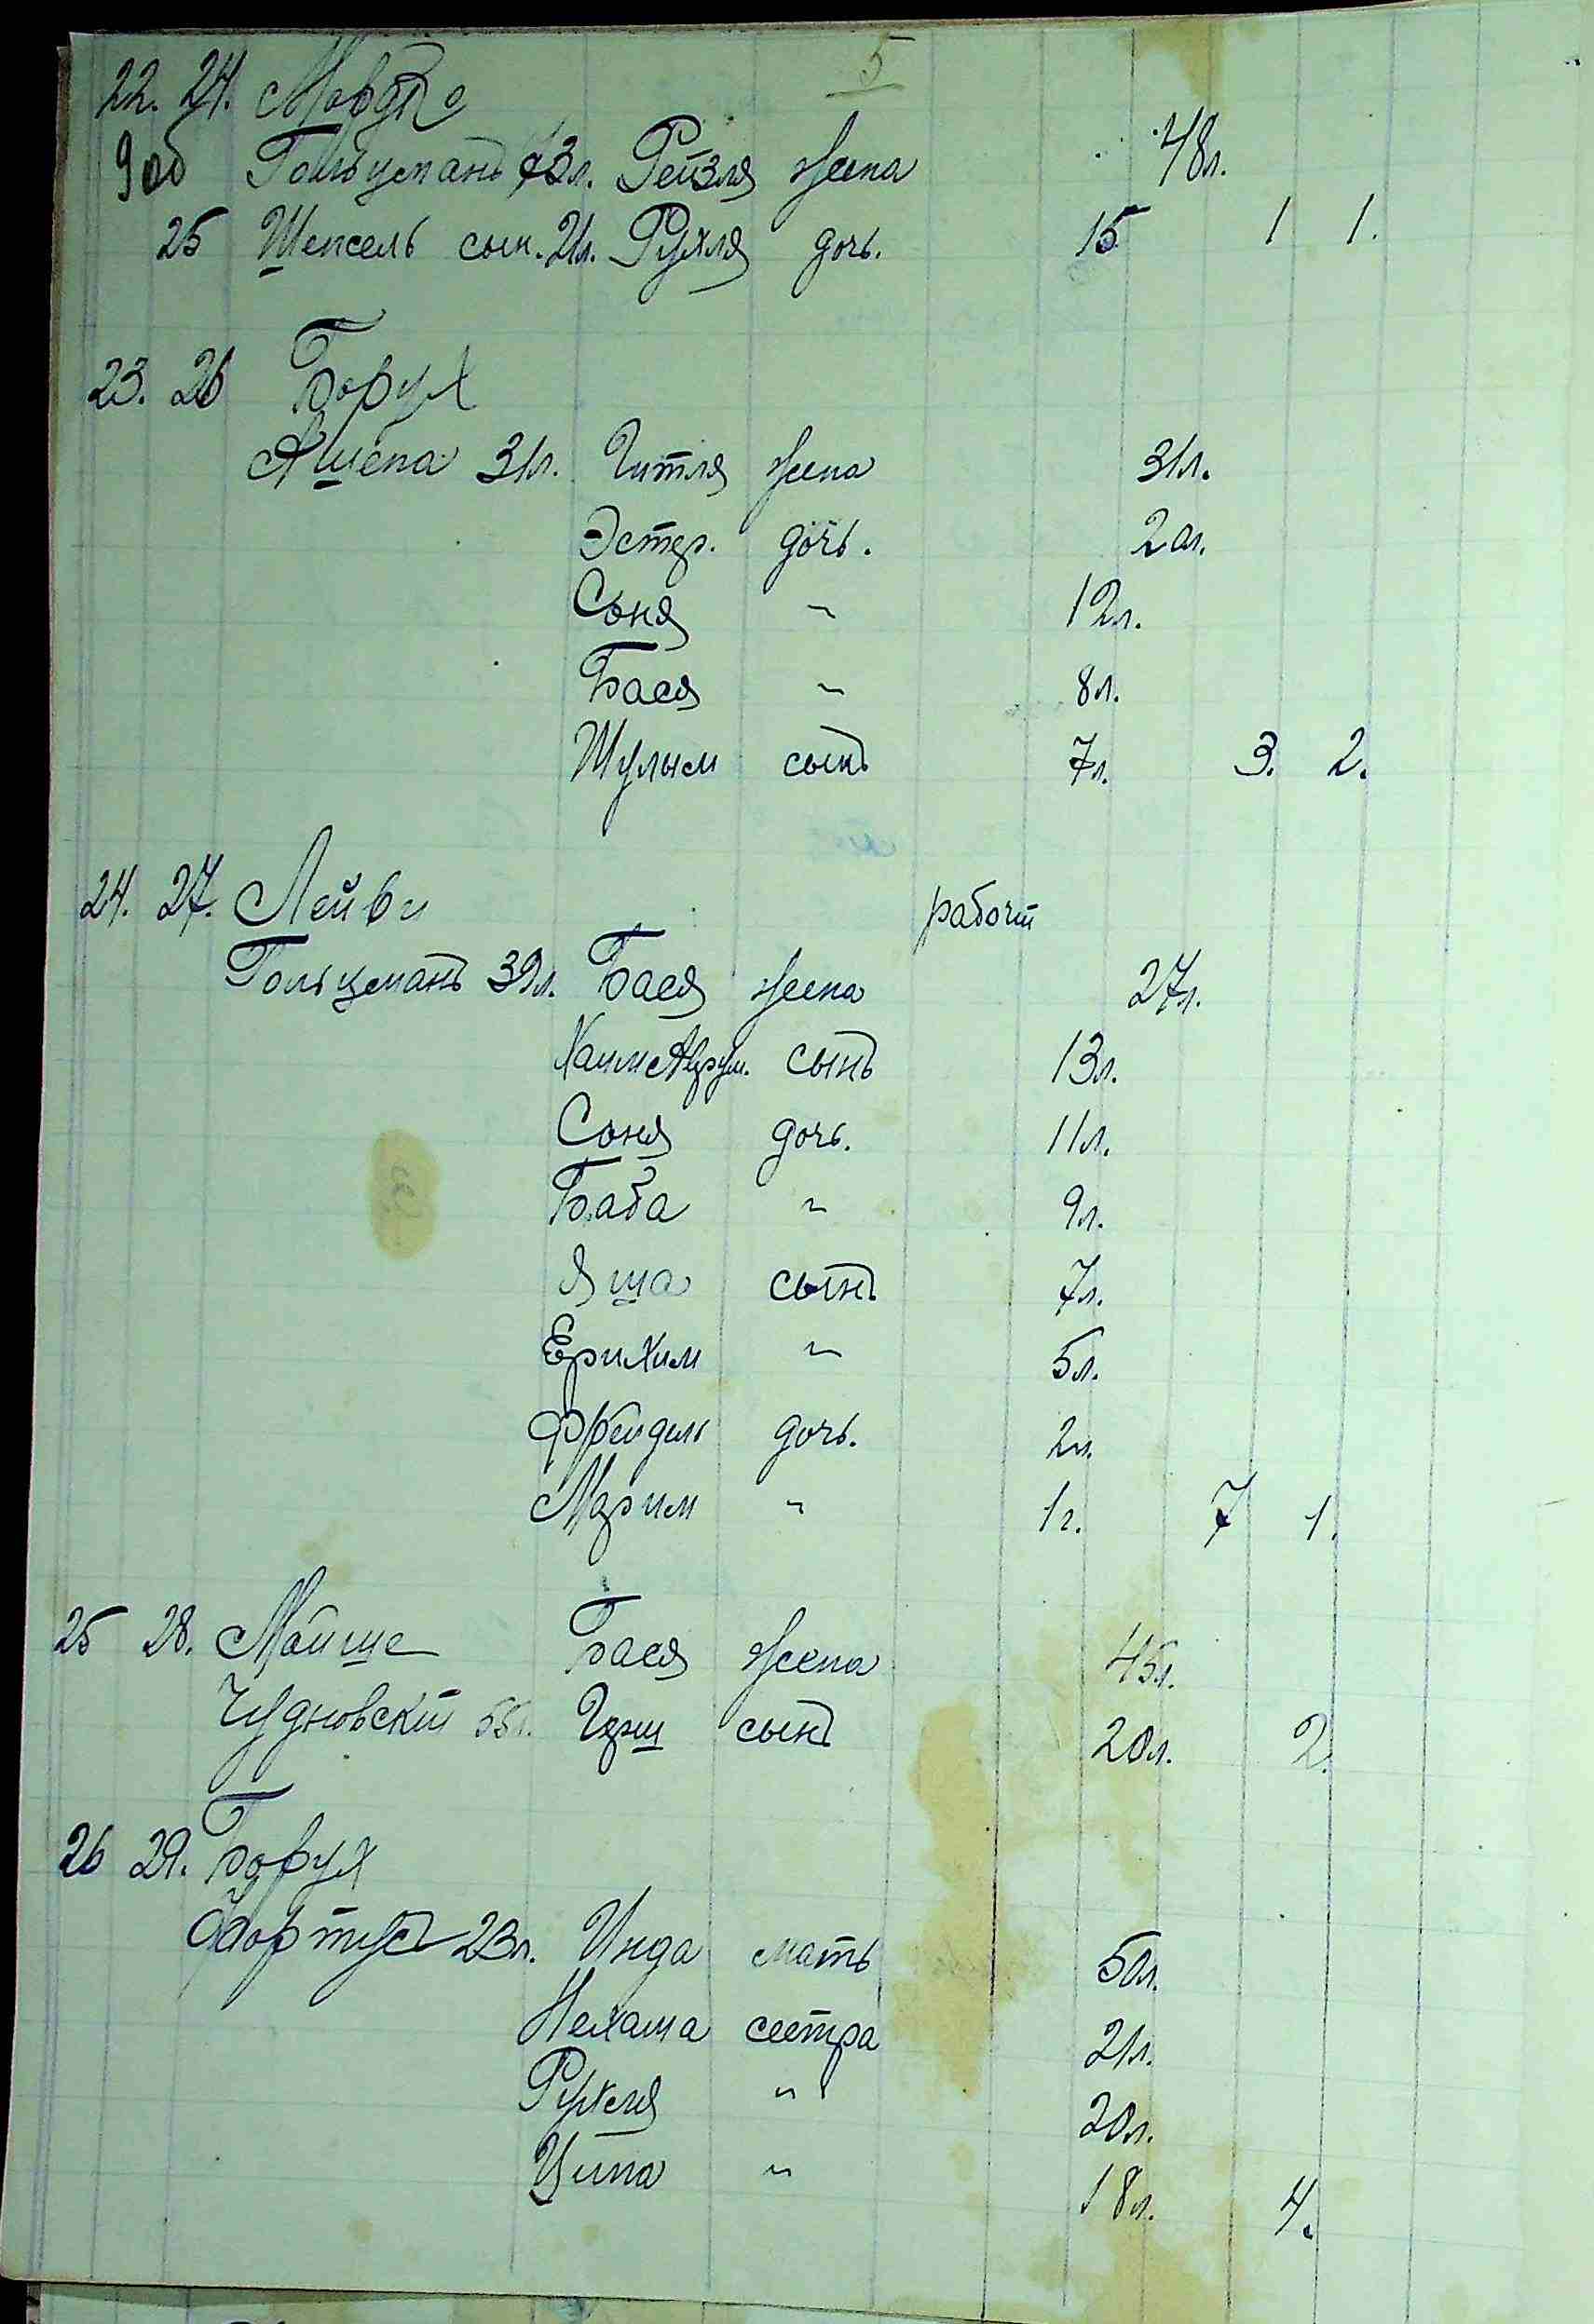 5
22. 24. Мордко
9об Гольцманъ 73л. Рейзля жена 48л.
25 Шепсель сын. 21л. Рухля дочь. 15 1 1.
23. 26 Борух
Ашепа 31л. Гитля жена 31л.
Эстер. дочь. 20л.
Соня " 12л.
Бася " 8л.
Шулым сынъ 7л. 3. 2.
24. 27. Лейви рабочій
Гольцманъ 39л. Бася жена 27л.
Хаим Аврум. сынъ 13л.
Соня дочь. 11л.
Баба " 9л.
Яша сынъ 7л.
Ерихим " 5л.
Фрейдель дочь. 2л.
Мариим " 1г. 7 1.
25 28. Мойше Бася жена 45л.
Чудновскій 55л. Герш сынъ 20л. 2.
26 29. Борух
Фортусъ 23л. Инда мать 50л.
Нехама сестра 21л.
Рухля " 20л.
Ципа " 18л. 4.